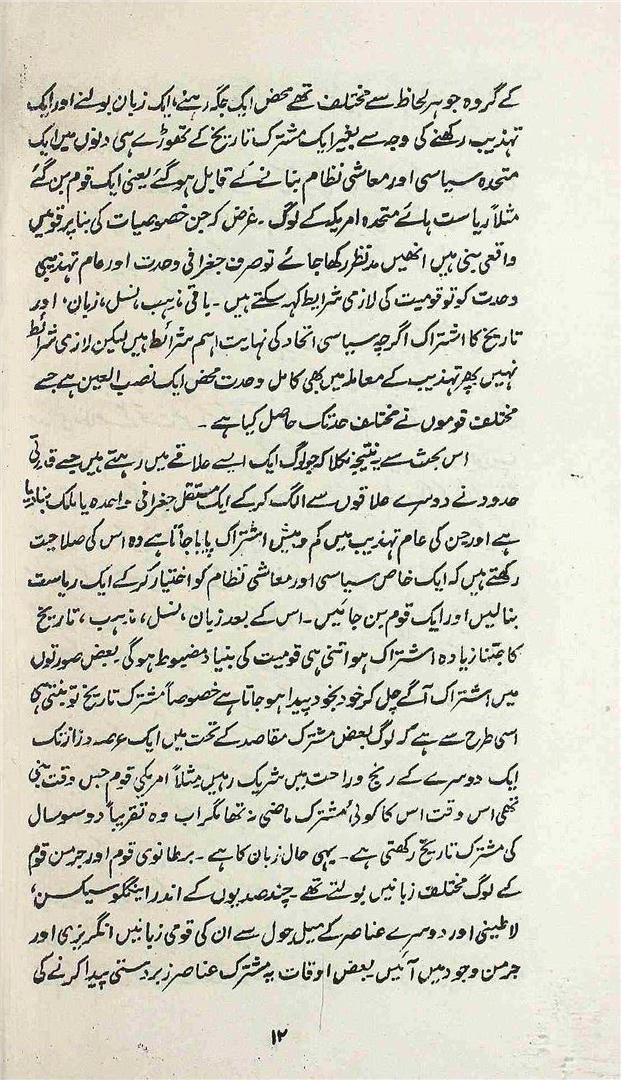 کے گروہ جو ہر لحاظ سے مختلف تھے محض ایک جگہ رہنے، ایک زبان بولنے اور ایک
تہذیب رکھنے کی وجہ سے بغیر ایک مشترک تاریخ کے تھوڑے ہی دنوں میں ایک
متحدہ سیاسی اور معاشی نظام بنانے کے قابل ہو گئے یعنی ایک قوم بن گئے
مثلاً ریاست ہائے متحدہ امریکہ کے لوگ ۔ غرض کہ جن خصوصیات کی بنا پر قومیں
واقعی بنی ہیں انھیں مدنظر رکھا جائے تو صرف جغرافی وحدت اور عام تہذیبی
وحدت کو تو قومیت کی لازمی شرایط کہہ سکتے ہیں ۔ باقی مذہب، نسل، زبان، اور
تاریخ کا اشتراک اگرچہ سیاسی اتحاد کی نہایت اہم شرائط ہیں لیکن لازمی شرائط
نہیں پھر تہذیب کے معاملہ میں بھی کامل وحدت محض ایک نصب العین ہے جسے
مختلف قوموں نے مختلف حد تک حاصل کیا ہے ۔
اس بحث سے یہ نتیجہ نکلا کہ جو لوگ ایک ایسے علاقے میں رہتے ہیں جسے قدرتی
حدود نے دوسرے علاقوں سے الگ کر کے ایک مستقل جغرافی واحدہ یا ملک بنا دیا
ہے اور جن کی عام تہذیب میں کم و بیش اشتراک پایا جاتا ہے وہ اس کی صلاحیت
رکھتے ہیں کہ ایک خاص سیاسی اور معاشی نظام کو اختیار کر کے ایک ریاست
بنا لیں اور ایک قوم بن جائیں ۔ اس کے بعد زبان، نسل، مذہب، تاریخ
کا جتنا زیادہ اشتراک ہو اتنی ہی قومیت کی بنیاد مضبوط ہوگی ۔ بعض صورتوں
میں اشتراک آگے چل کر خود بخود پیدا ہو جاتا ہے خصوصاً مشترک تاریخ تو بنتی ہی
اسی طرح سے ہے کہ لوگ بعض مشترک مقاصد کے تحت میں ایک عرصہ دراز تک
ایک دوسرے کے رنج و راحت میں شریک رہیں مثلاً امریکی قوم جس وقت بنی
تھی اس وقت اس کا کوئی مشترک ماضی نہ تھا مگر اب وہ تقریباً دو سو سال
کی مشترک تاریخ رکھتی ہے ۔ یہی حال زبان کا ہے ۔ برطانوی قوم اور جرمن قوم
کے لوگ مختلف زبانیں بولتے تھے چند صدیوں کے اندر اینگلو سیکسن،
لاطینی اور دوسرے عناصر کے میل جول سے ان کی قومی زبانیں انگریزی اور
جرمن وجود میں آئیں ۔ بعض اوقات یہ مشترک عناصر زبردستی پیدا کرنے کی
۱۲